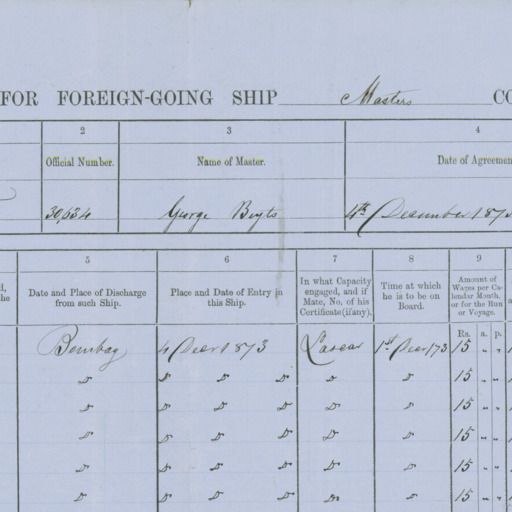 FOR FOREIGN-GOING SHIP Masters CO
2 3 4
Official Number. Name of Master. Date of Agreemen
30,634 George Boyts 4th December 1873
5 6 7 8 9
d, the Date and Place of Discharge from such Ship. Place and Date of Entry in this Ship. In what Capacity engaged, and if Mate, No. of his Certificate (if any). Time at which he is to be on Board. Amount of Wages per Calendar Month, or for the Run or Voyage.
Rs. a. p.
Bombay 4 Decr 1873 Lascar 1st Decr/73 15 " "
D D D D D D 15 " "
D D D D D D 15 " "
D D D D D D 15 " "
D D D D D D 15 " "
D D D D D D 15 " "